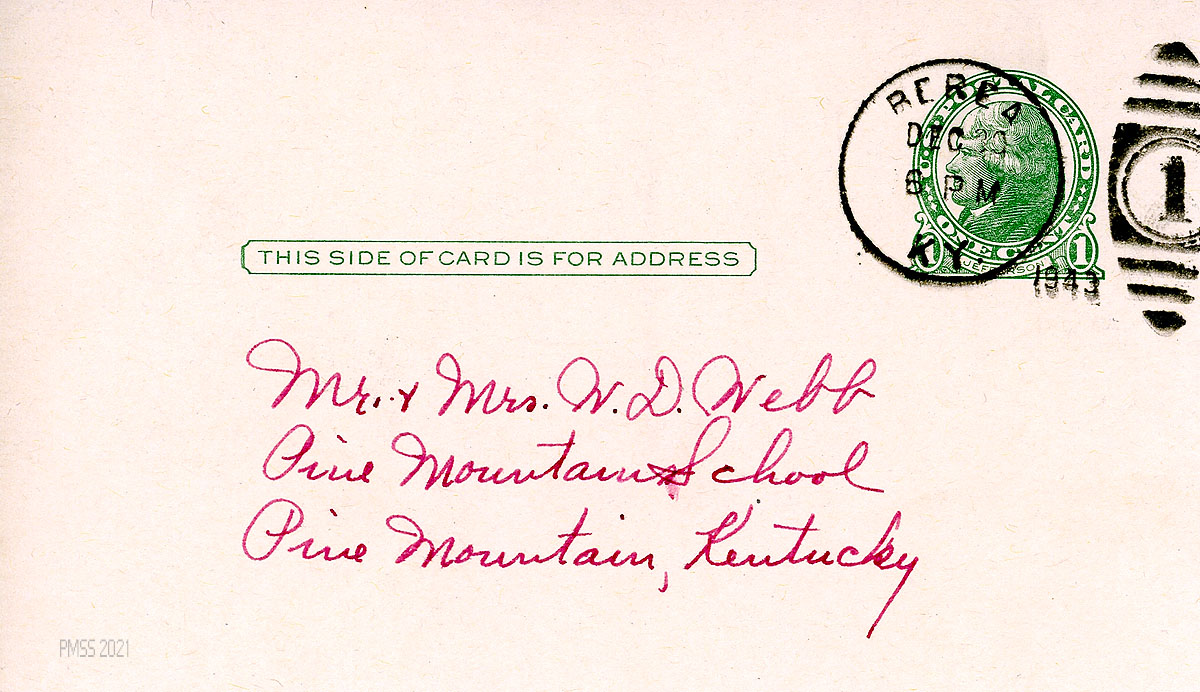 BEREA
DEC
6 PM
KY.
1943
1
POSTAL CARD
ONE CENT
1
JEFFERSON
THIS SIDE OF CARD IS FOR ADDRESS
Mr. & Mrs. W. D. Webb
Pine Mountain School
Pine Mountain, Kentucky
PMSS 2021